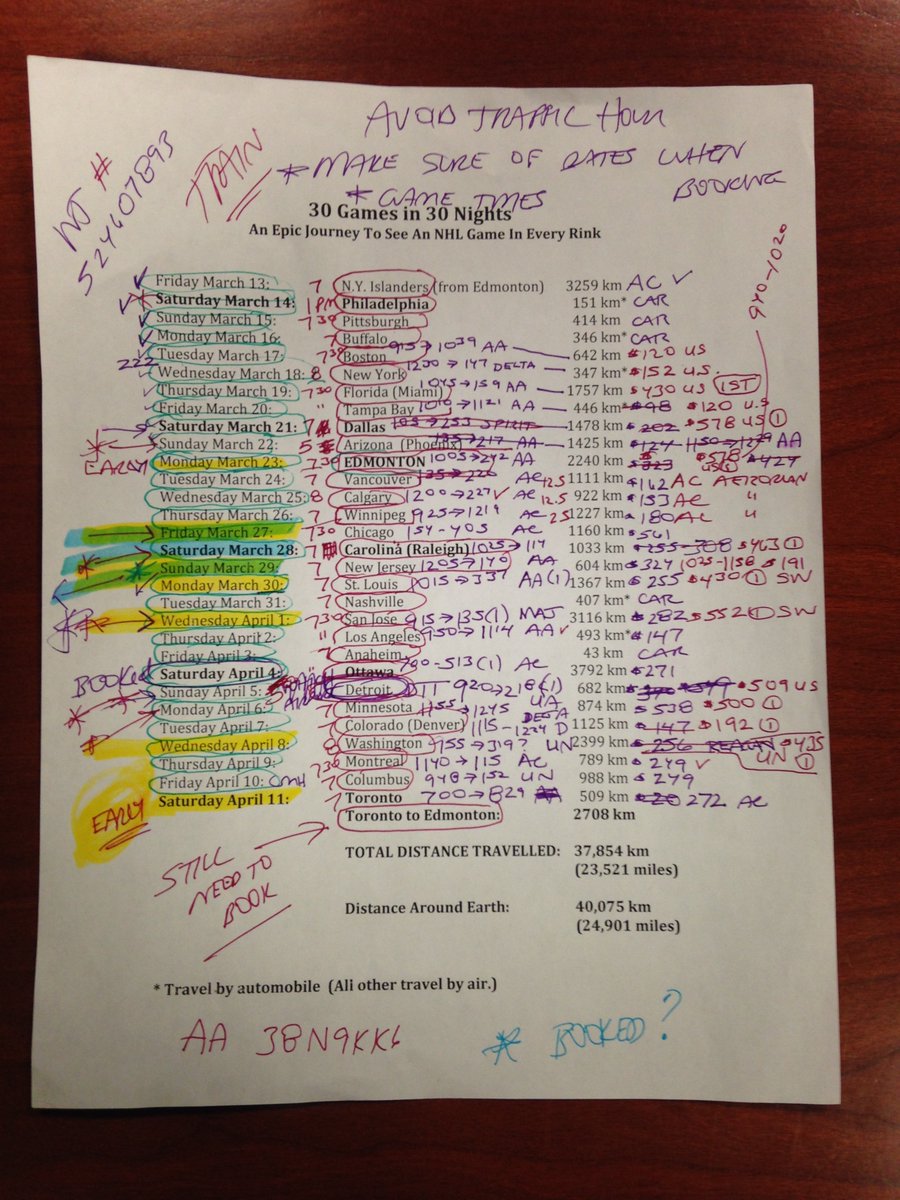 AVOID TRAFFIC HOUR
TRAIN
* MAKE SURE OF DATES WHEN BOOKING
* GAME TIMES
# 524607893
30 Games in 30 Nights
An Epic Journey To See An NHL Game In Every Rink
940-1020
Friday March 13: 7 N.Y. Islanders (from Edmonton) 3259 km AC
Saturday March 14: 1 PM Philadelphia 151 km* CAR
Sunday March 15: 730 Pittsburgh 414 km CAR
Monday March 16: 7 Buffalo 346 km* CAR
Tuesday March 17: 730 Boston 915→1039 AA 642 km $120 US
222 Wednesday March 18: 8 New York 1230→147 DELTA 347 km* $152 U.S.
Thursday March 19: 730 Florida (Miami) 1045→159 AA 1757 km $430 US 1ST
Friday March 20: " Tampa Bay 1010→1121 AA 446 km $98 $120 U.S
Saturday March 21: 7 Dallas 105→253 SPIRIT 1478 km $202 $578 US 1
Sunday March 22: 5 Arizona (Phoenix) 135→217 AA 1425 km $124 1150→1229 AA
EARLY Monday March 23: 730 EDMONTON 1005→242 AA 2240 km $323 $578 US 1 $424
Tuesday March 24: 7 Vancouver 135→226 AC 12.5 1111 km $162 AC AEROPLAN
Wednesday March 25: 8 Calgary 1200→227 AC 12.5 922 km $153 AC "
Thursday March 26: 7 Winnipeg 925→1219 AC 25 1227 km $180 AC "
Friday March 27: 730 Chicago 154-405 AC 1160 km $561
Saturday March 28: 7 Carolina (Raleigh) 1025→114 1033 km $255-308 $463 1
Sunday March 29: 7 New Jersey 1205→140 AA 604 km $324 1025-1158 $191
Monday March 30: 7 St. Louis 1015→337 AA (1) 1367 km $255 $430 1 SW
Tuesday March 31: 7 Nashville 407 km* CAR
Wednesday April 1: 730 San Jose 915→135(1) 3116 km $282 $552 1 SW
Thursday April 2: " Los Angeles 950→1114 AA 493 km* $147
Friday April 3: 7 Anaheim 43 km CAR
BOOKED Saturday April 4: Ottawa 700-513(1) AC 3792 km $271
Sunday April 5: 5 Detroit DTT 920→218(1) 682 km $509 US
Monday April 6: 7 Minnesota 1155→1245 UA 874 km $538 $500 1
Tuesday April 7: 7 Colorado (Denver) 1115-1224 DELTA 1125 km $147 $192 1
Wednesday April 8: 8 Washington 755→319? UN 2399 km $256 REAGAN $435 UN 1
Thursday April 9: 730 Montreal 1140→115 AC 789 km $249
Friday April 10: CMH 7 Columbus 948→152 UN 988 km $249
Saturday April 11: 7 Toronto 700→829 AA 509 km $20 272 AC
EARLY
Toronto to Edmonton: 2708 km
STILL NEED TO BOOK
TOTAL DISTANCE TRAVELLED: 37,854 km
(23,521 miles)
Distance Around Earth: 40,075 km
(24,901 miles)
* Travel by automobile (All other travel by air.)
AA 38N9KK6
* BOOKED?